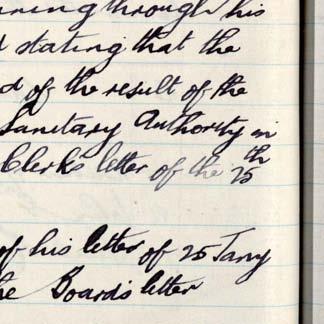 through his
stating that the
of the result of the
Sanitary Authority in
Clerk's letter of the 25th
of his letter of 25 Jany
the Board's letter